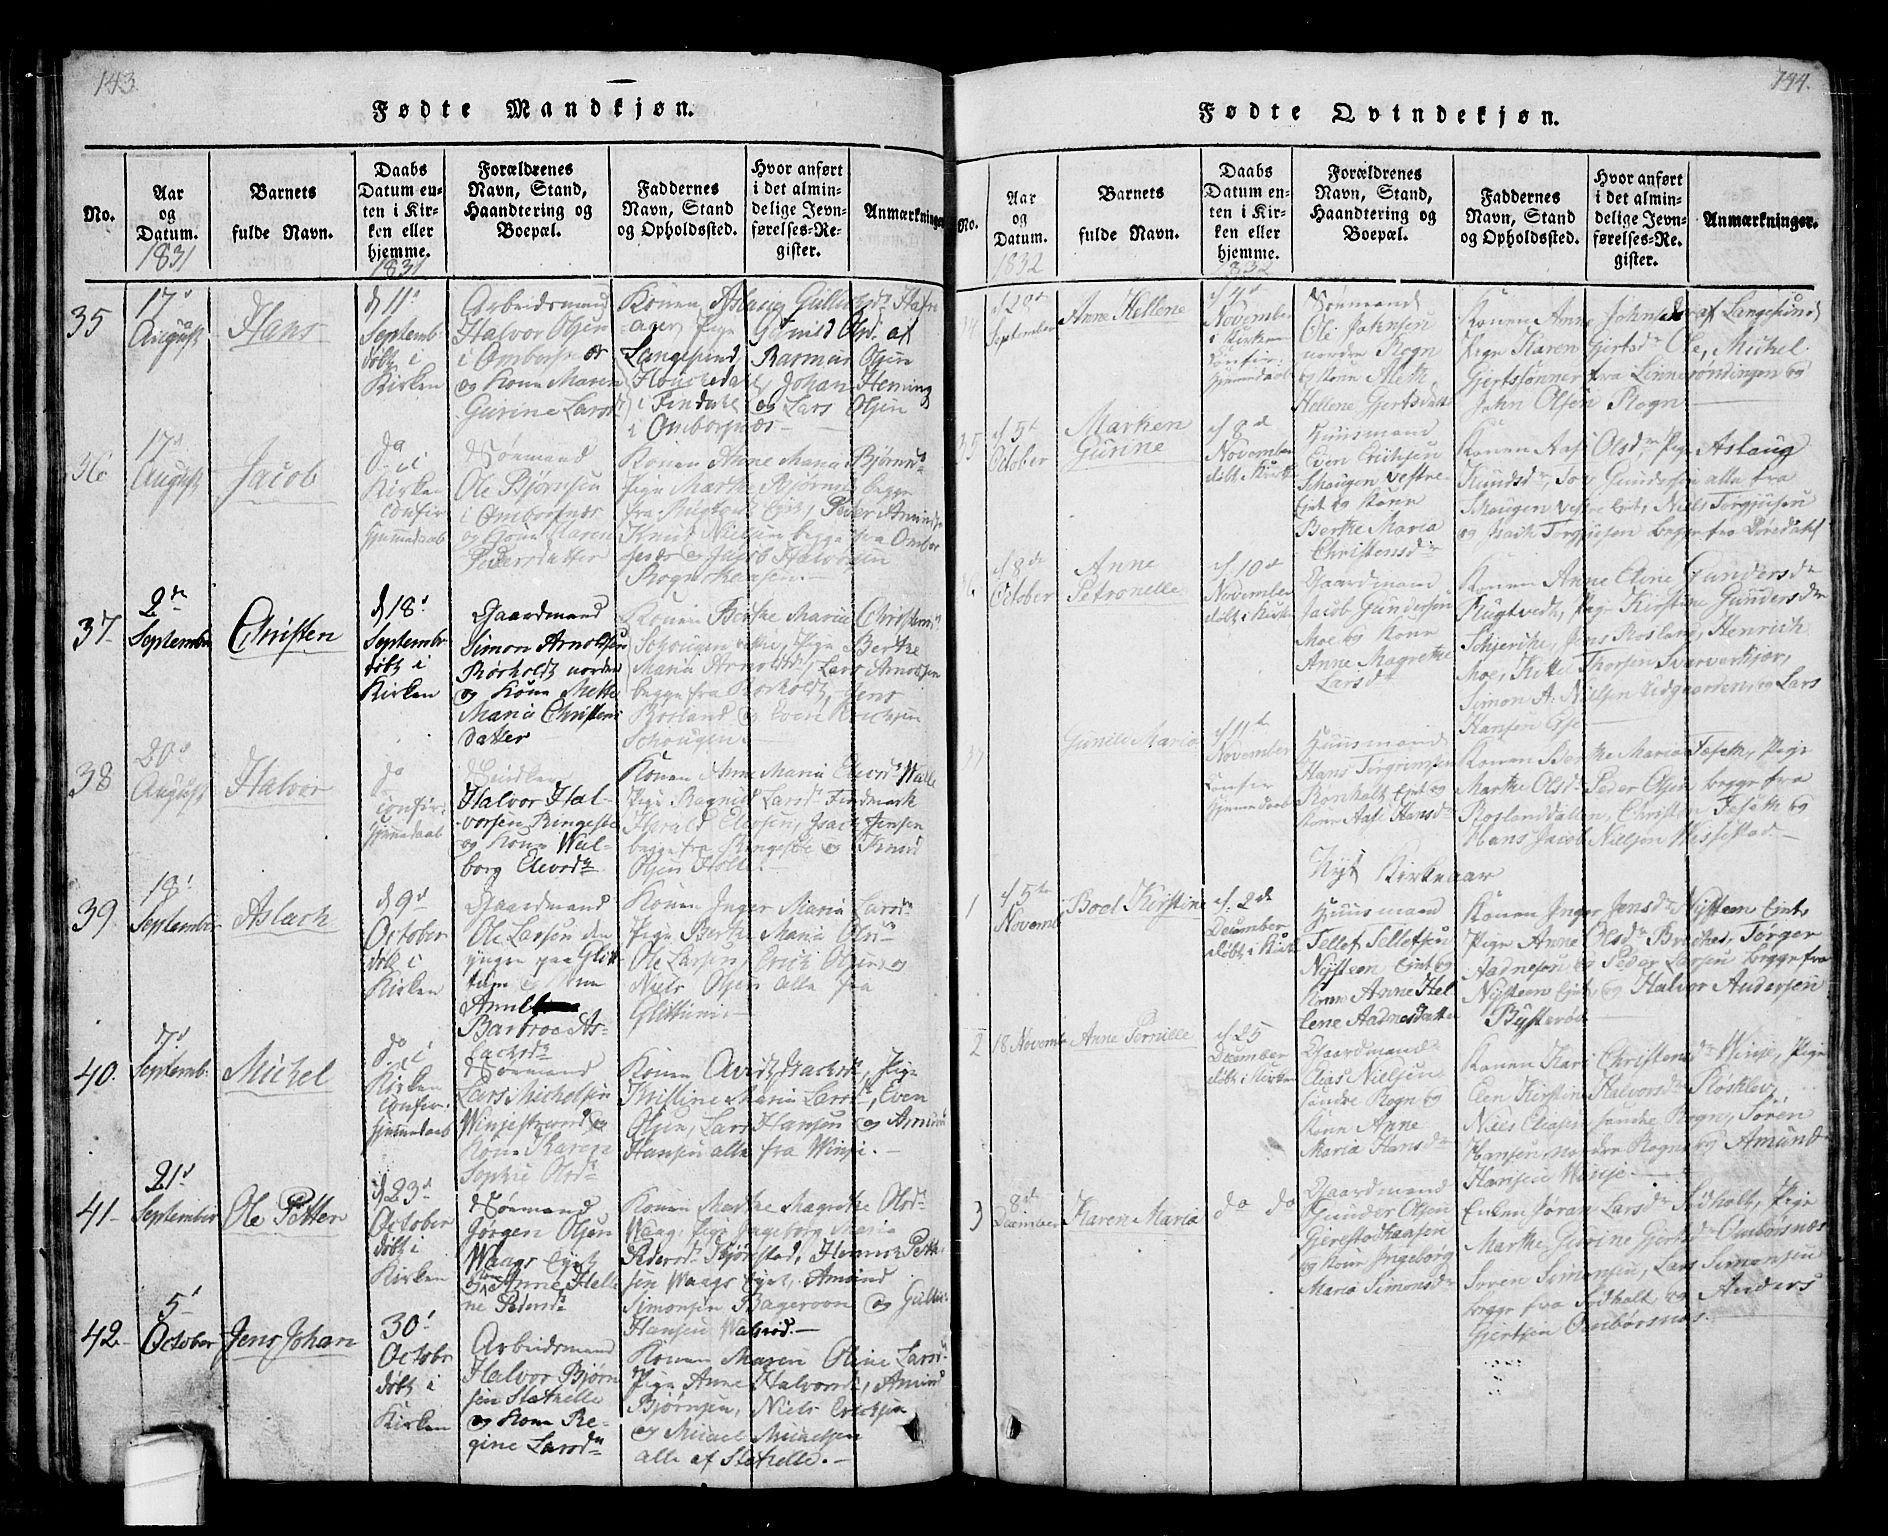 143
Fødte Mandkjøn.
No.
Aar
og
Datum.
1831
Barnets
fulde Navn.
Daabs
Datum en-
ten i Kir-
ken eller
hjemme.
1831
Forældrenes
Navn, Stand,
Haandtering og
Boepæl.
Faddernes
Navn, Stand
og Opholdssted.
Hvor anført
i det almin-
delige Jevn-
førelses-Re-
gister.
Anmærkninger
35
17d
August
Hans
d 11d
Septemb
døbt i
Kirken
Arbeidsmand
Halvor Olsen
i Omborsnæs
og Kone Maren
Gurine Larsd
Langesund
Johan Heming
og Lars Olsen
i Omborsnæs
36
17d
August
Jacob
do i
Kirken
confir
hjemmedaab
Sømand
Ole Bjørnsen
i Omborsnæs
og Kone Maren
Pedersdatter
Konen Anne Maria Bjørnsd
Pige Marthe Bjørnsd begge
Knud Nielsen begge fra Ombor
snæs og Jacob Halvorsen
37
2den
September
Christen
d 18d
Septembr
døbt i
Kirken
Gaardmand
Simon Arnoldsen
Rørholt nordre
og Kone Mette
Maria Christens
datter
Konen Berthe Maria Christensd
Pige Berthe
Maria Arnoldsd, Lars Arnoldsen
begge fra Rørholt, Jens
Rosland og Even Erichsen
Schougen.
38
20d
August
Halvor
do
confir.
hjemmedaab
Halvor Hal-
vorsen Ringeste
og Kone Wal-
borg Elevsdr
Konen Anne Maria Elevsdr Walle
Pige Ragnild Larsdr Findmark
Herald Elevsen, Isach Jensen
begge fra Ringeste og Knud
Olsen Holte.
39
18d
September
Aslach
d 9d
October
døbt i
Kirken
Gaardmand
Ole Larsen den
yngre paa Glit-
tum og Kone
Barbroe As-
lachsdr
Konen Inger Maria Larsdr
Pige Berthe Maria Olsdr
Ole Larsen, Erich Olsen og
Niels Olsen alle fra
Glittum.
40.
7d
Septemb.
Michel
do i
Kirken
confir.
hjemmedaab
Sømand
Lars Michelsen
Winjestrand og
Kone Karen
Sophie Olsdr
Kristine Maria Larsdr, Even
Olsen, Lars Hansen og Amund
Hansen alle fra Winje.
41
21d
September
Ole Petter
d 23d
October
døbt i
Kirken
Sømand
Jørgen Olsen
Waags Ejet
og Kone Anne Hele
ne Pedersdr
Konen Marthe Magrethe Olsdr
Waag, Pige Ingeborg Maria
Pedersdr Kjørstad, Henrich Pette
sen Waags Eyet, Amund
Simonsen Bagerovn og Gullic
Hansen Walrød.
42
5d
October
Jens Johan
30d
October
døbt i
Kirken
Arbeidsmand
Halvor Bjørn
sen Stathelle
og Kone Re-
gine Larsdr
Konen Maren Oline Larsdr
Pige Anne Halvorsdr, Amund
Bjørnsen, Niels Erichsen
og Michel Michelsen
alle af Stathelle.
144.
Fødte Qvindekjøn.
No.
Aar
og
Datum.
1832
Barnets
fulde Navn.
Daabs
Datum en-
ten i Kir-
ken eller
hjemme.
1832
Forældrenes
Navn, Stand,
Haandtering og
Boepæl.
Faddernes
Navn, Stand
og Opholdssted.
Hvor anført
i det almin-
delige Jevn-
førelses-Re-
gister.
Anmærkninger.
d 20d
September
Anne Hellene
d 4d
November
i Kirken
confir.
hjemmedaab
Sømand
Ole Johnsen
nordre Rogn
og Kone Aleth
Hellene Gjertsdatt
Konen Anne Johnsdr af Langesund
Pige Karen Gjertsdr Ole, Michel
Gjertssønner fra Linnerondingen og
John Olsen Rogn
35
d 5d
October
Marken
Gurine
d 8d
November
døbt i Kirk
Huusmand
Even Erichsen
Schougen vestre
Ejet og Kone
Berthe Maria
Christensdr
Konen Aase Olsdr, Pige Aslaug
Knudsdr, Tov Gundersen alle fra
Schougen vestre Ejet, Niels Torgjusen
og Isach Torgjusen begge fra Dørsdahl
d 8de
October
Anne
Petronelle
d 10d
November
døbt i Kirk
Gaardmand
Jacob Gundersen
Moe og Kone
Anne Magrethe
Larsdr
Konen Anne Eline Gundersdr
Rugtvedt, Pige Kirstine Gundersdr
Schjerche, Jens Rosland, Henrich
Moe, Kittil Thorsen Svarverkjør,
Simon A. Nielsen Eidgaarden og Lars
Hansen
37
Gunild Maria
d 11te
November
confir
hjemmedaab
Huusmand
Hans Torgrimsen
Rønholt Ejet og
Kone Aase Hansdr
Konen Berthe Maria Toseth, Pige
Marthe Olsdr Peder Olsen begge fra
Roslanddalen, Christen Toseth og
Hans Jacob Nielsen Wissestad.
Nyt Kirkeaar
1
d 5te
Novemb
Boel Kirstine
d. 2de
December
døbt i Kirk
Huusmand
Tellef Tellefsen
Nysteen Ejet og
Kone Anne Hel
lene Aadnesdatt
Konen Inger Jensdr Nysteen Ejet
Pige Anne Olsdr Brekke, Torger
Aadnesen og Peder Larsen begge fra
Nysteen Ejet, og Halvor Andersen
Bysterød
2
18 Novemb
Anne Pernille
d 25
December
døbt i Kirken
Gaardmand
Elias Nielsen
søndre Rogn og
Kone Anne
Maria Hansdr
Konen Kari Christensdr Winje, Pige
Elen Kirstine Halvorsdr Røsklev,
Niels Eliasen søndre Rogn, Søren
Hansen nordre Rogn og Amund
Hansen Winje.
3
8de
December
Karen Maria
do do
Gaardmand
Gunder Olsen
Gjerestodhaasen
og Kone Ingeborg
Maria Simonsdr
Enken Jøran Larsdr Fodholt, Pige
Marthe Gurine Gjertsdr Ombørsnæs
Soren Simonsen, Lars Simonsen
begge fra Fodholt og Anders
Gjertsen Ombørsnæs.